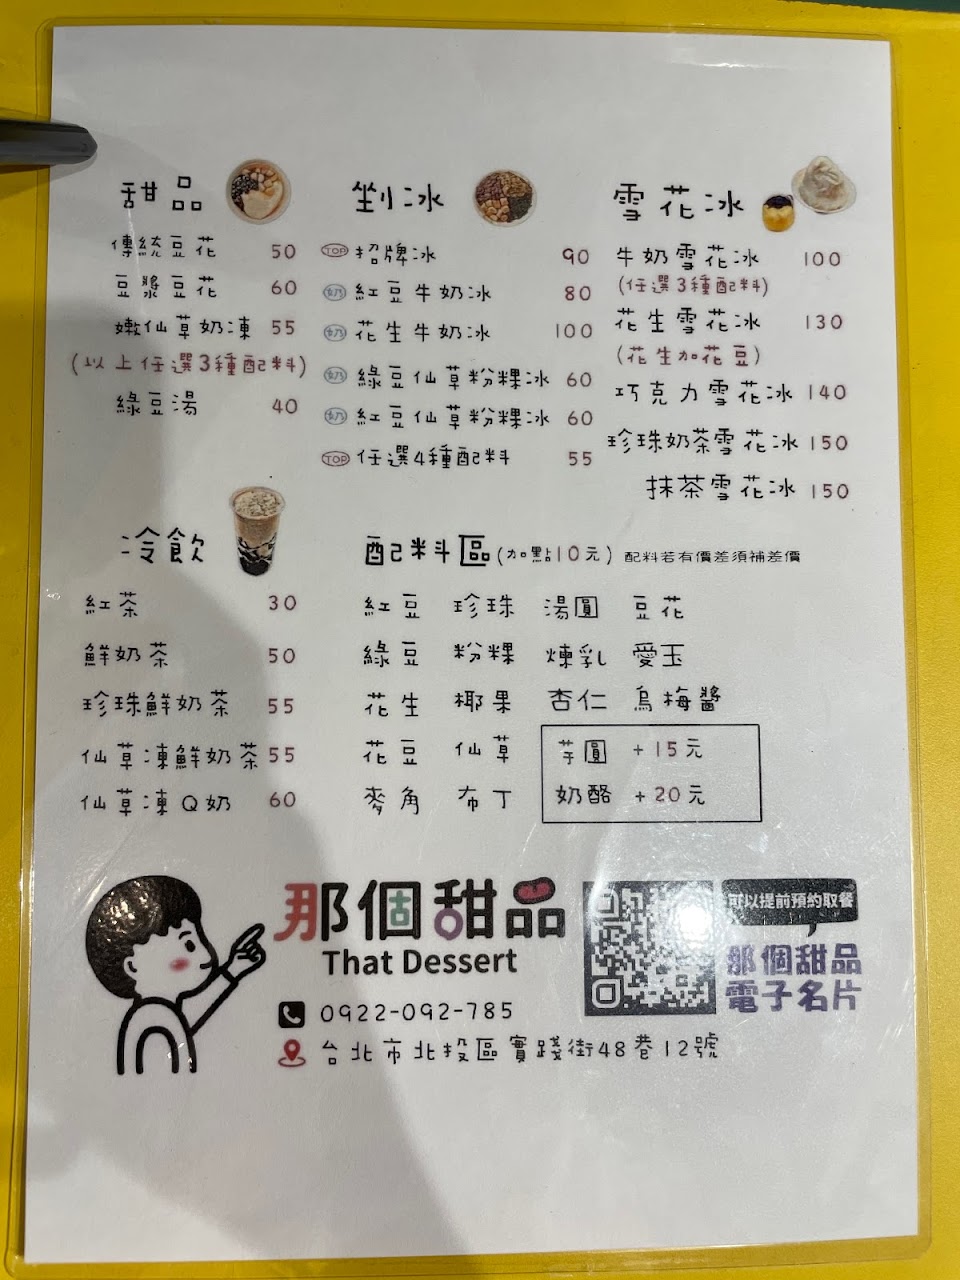 甜品
傳統豆花 50
豆漿豆花 60
嫩仙草奶凍 55
(以上任選3種配料)
綠豆湯 40
剉冰
TOP 招牌冰 90
奶 紅豆牛奶冰 80
奶 花生牛奶冰 100
奶 綠豆仙草粉粿冰 60
奶 紅豆仙草粉粿冰 60
TOP 任選4種配料 55
雪花冰
牛奶雪花冰 100
(任選3種配料)
花生雪花冰 130
(花生加花豆)
巧克力雪花冰 140
珍珠奶茶雪花冰 150
抹茶雪花冰 150
冷飲
紅茶 30
鮮奶茶 50
珍珠鮮奶茶 55
仙草凍鮮奶茶 55
仙草凍Q奶 60
配料區(加點10元) 配料若有價差須補差價
紅豆 珍珠 湯圓 豆花
綠豆 粉粿 煉乳 愛玉
花生 椰果 杏仁 烏梅醬
花豆 仙草 芋圓 +15元
麥角 布丁 奶酪 +20元
那個甜品
That Dessert
0922-092-785
台北市北投區實踐街48巷12號
可以提前預約取餐
那個甜品
電子名片